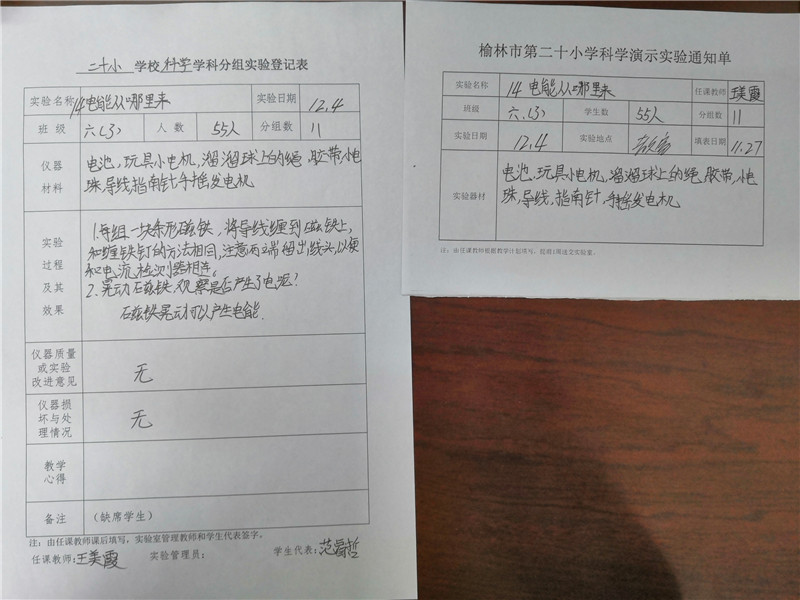 二十小 学校 科学 学科分组实验登记表
实验名称 14电能从哪里来 实验日期 12.4
班 级 六(3) 人 数 55人 分组数 11
仪器
材料
电池,玩具小电机,溜溜球上的绳 胶带,小电
珠,导线,指南针,手摇发电机
实验
过程
及其
效果
1.每组一块条形磁铁,将导线缠到磁铁上,
和缠铁钉的方法相同,注意两端留出线头,以便
和电流检测器相连。
2.晃动磁铁,观察是否产生了电呢?
磁铁晃动可以产生电能.
仪器质量
或实验
改进意见
无
仪器损
坏与处
理情况
无
教学
心得
备注 (缺席学生)
注:由任课教师课后填写,实验室管理教师和学生代表签字。
任课教师:王美霞 实验管理员: 学生代表:范睿哲
榆林市第二十小学科学演示实验通知单
实验名称 14 电能从哪里来 任课教师 王美霞
班级 六(3) 学生数 55人 分组数 11
实验日期 12.4 实验地点 填表日期 11.27
实验器材
电池,玩具小电机,溜溜球上的绳,胶带,小电
珠,导线,指南针,手摇发电机
注:由任课教师根据教学计划填写,提前1周送交实验室。